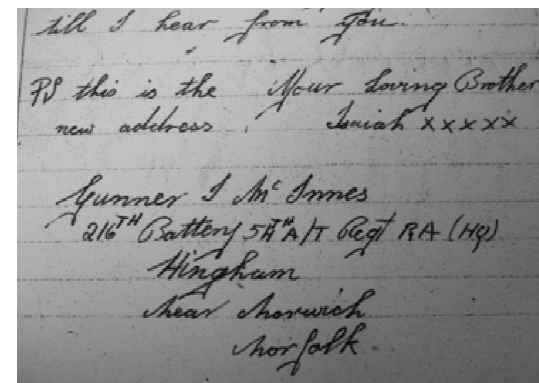 till I hear from you.
PS this is the Your Loving Brother
new address. Isaiah x x x x x
Gunner I McInnes
216TH Battery 54TH A/T Regt RA (HQ)
Hingham
Near Norwich
Norfolk.